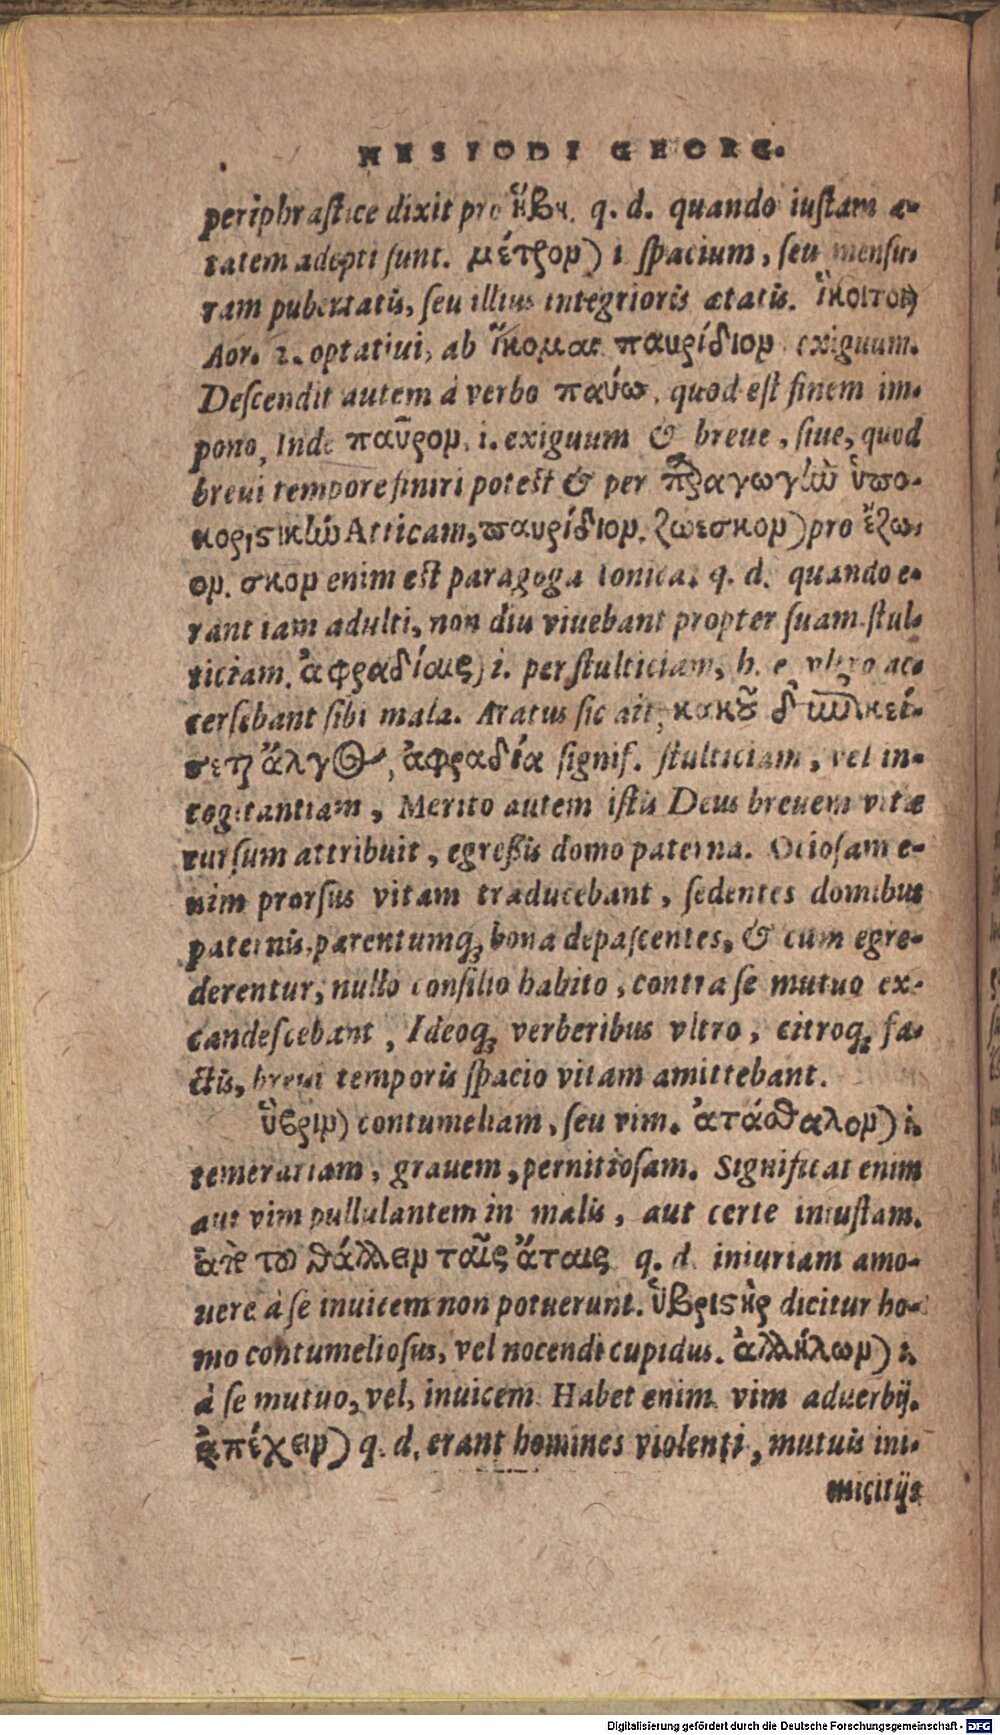 HESIODI GEORG.
periphrastice dixit pro ἥβη. q. d. quando iustam æ-
tatem adepti sunt. μέτρον) i. spacium, seu mensu-
ram pubertatis, seu illius integrioris ætatis. ἵκοιτον)
Aor. 2. optatiui, ab ἵκομαι παυρίδιον exiguum.
Descendit autem à verbo παύω, quod est finem im-
pono, Inde παῦρον, i. exiguum & breue, siue, quod
breui tempore finiri potest & per παραγωγὴν ὑπο-
κοριστικὴν Atticam, παυρίδιον. ζώεσκον) pro ἔζω-
ον. σκον enim est paragoga Ionica. q. d. quando e-
rant iam adulti, non diu viuebant propter suam stul-
ticiam. ἀφραδίαις) i. per stulticiam, h. e. vltro ac-
cersebant sibi mala. Aratus sic ait, κακοῦ δ' ἐπικεί-
σεται ἄλγος, ἀφραδία signif. stulticiam, vel in-
cogitantiam, Merito autem istis Deus breuem vitæ
cursum attribuit, egreßis domo paterna. Ociosam e-
nim prorsus vitam traducebant, sedentes domibus
paternis, parentumq́; bona depascentes, & cum egre-
derentur, nullo consilio habito, contra se mutuo ex-
candescebant, Ideoq́; verberibus vltro, citroq́; fa-
ctis, breui temporis spacio vitam amittebant.
ὕβριν) contumeliam, seu vim. ἀτάσθαλον) i.
temerariam, grauem, pernitiosam. Significat enim
aut vim pullulantem in malis, aut certe iniustam.
ἀπὸ τοῦ θάλλειν ταῖς ἄταις q. d. iniuriam amo-
uere à se inuicem non potuerunt. ὑβριστὴς dicitur ho-
mo contumeliosus, vel nocendi cupidus. ἀλλήλων) i.
à se mutuo, vel, inuicem Habet enim vim aduerbij.
ἀπέχειν) q. d. erant homines violenti, mutuis ini-
micitijs
Digitalisierung gefördert durch die Deutsche Forschungsgemeinschaft - DFG